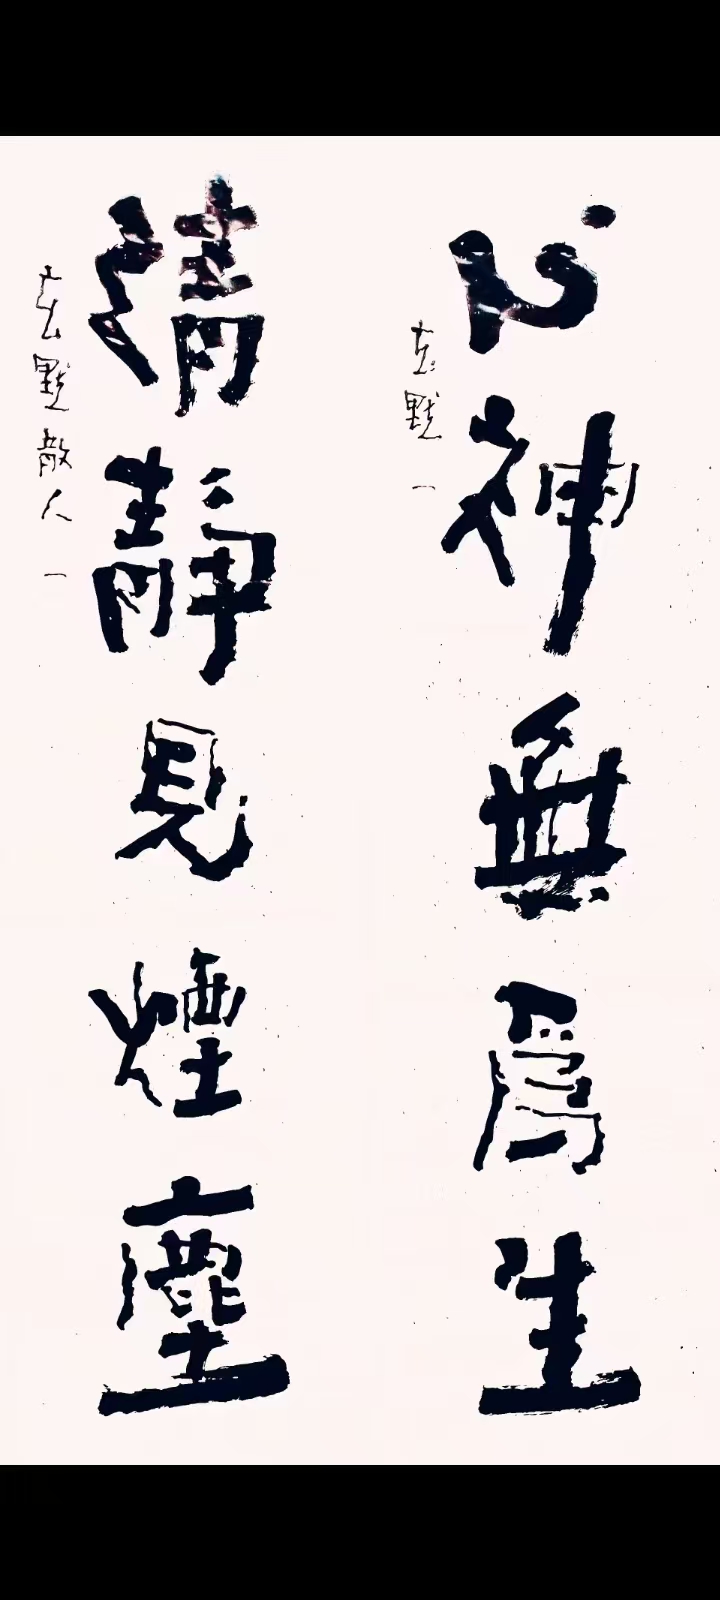 心神無為生
清靜見煙塵
玄默散人
玄默